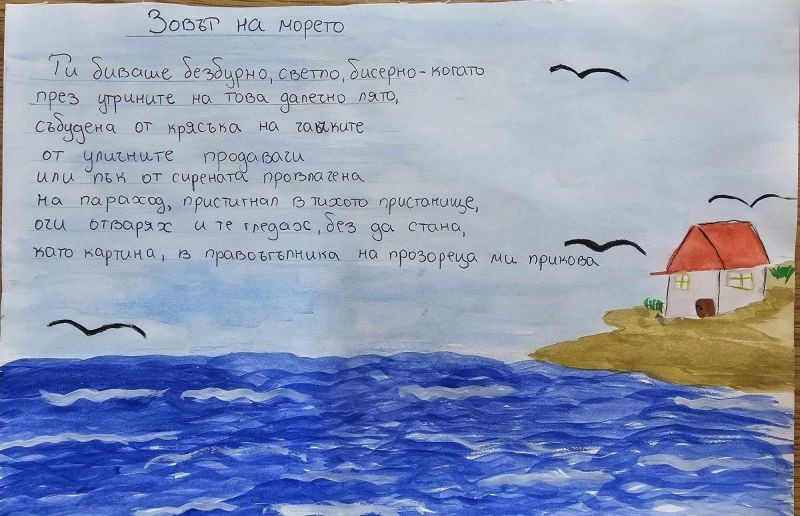 Зовът на морето
Ти биваше безбурно, светло, бисерно-когато
през утрините на това далечно лято,
събудена от крясъка на гачките
от уличните продавачи
или пък от сирената провлачена
на параход, пристигнал в тихото пристанище,
очи отварях и те гледах, без да стана,
като картина, в правоъгълника на прозореца ми прикова